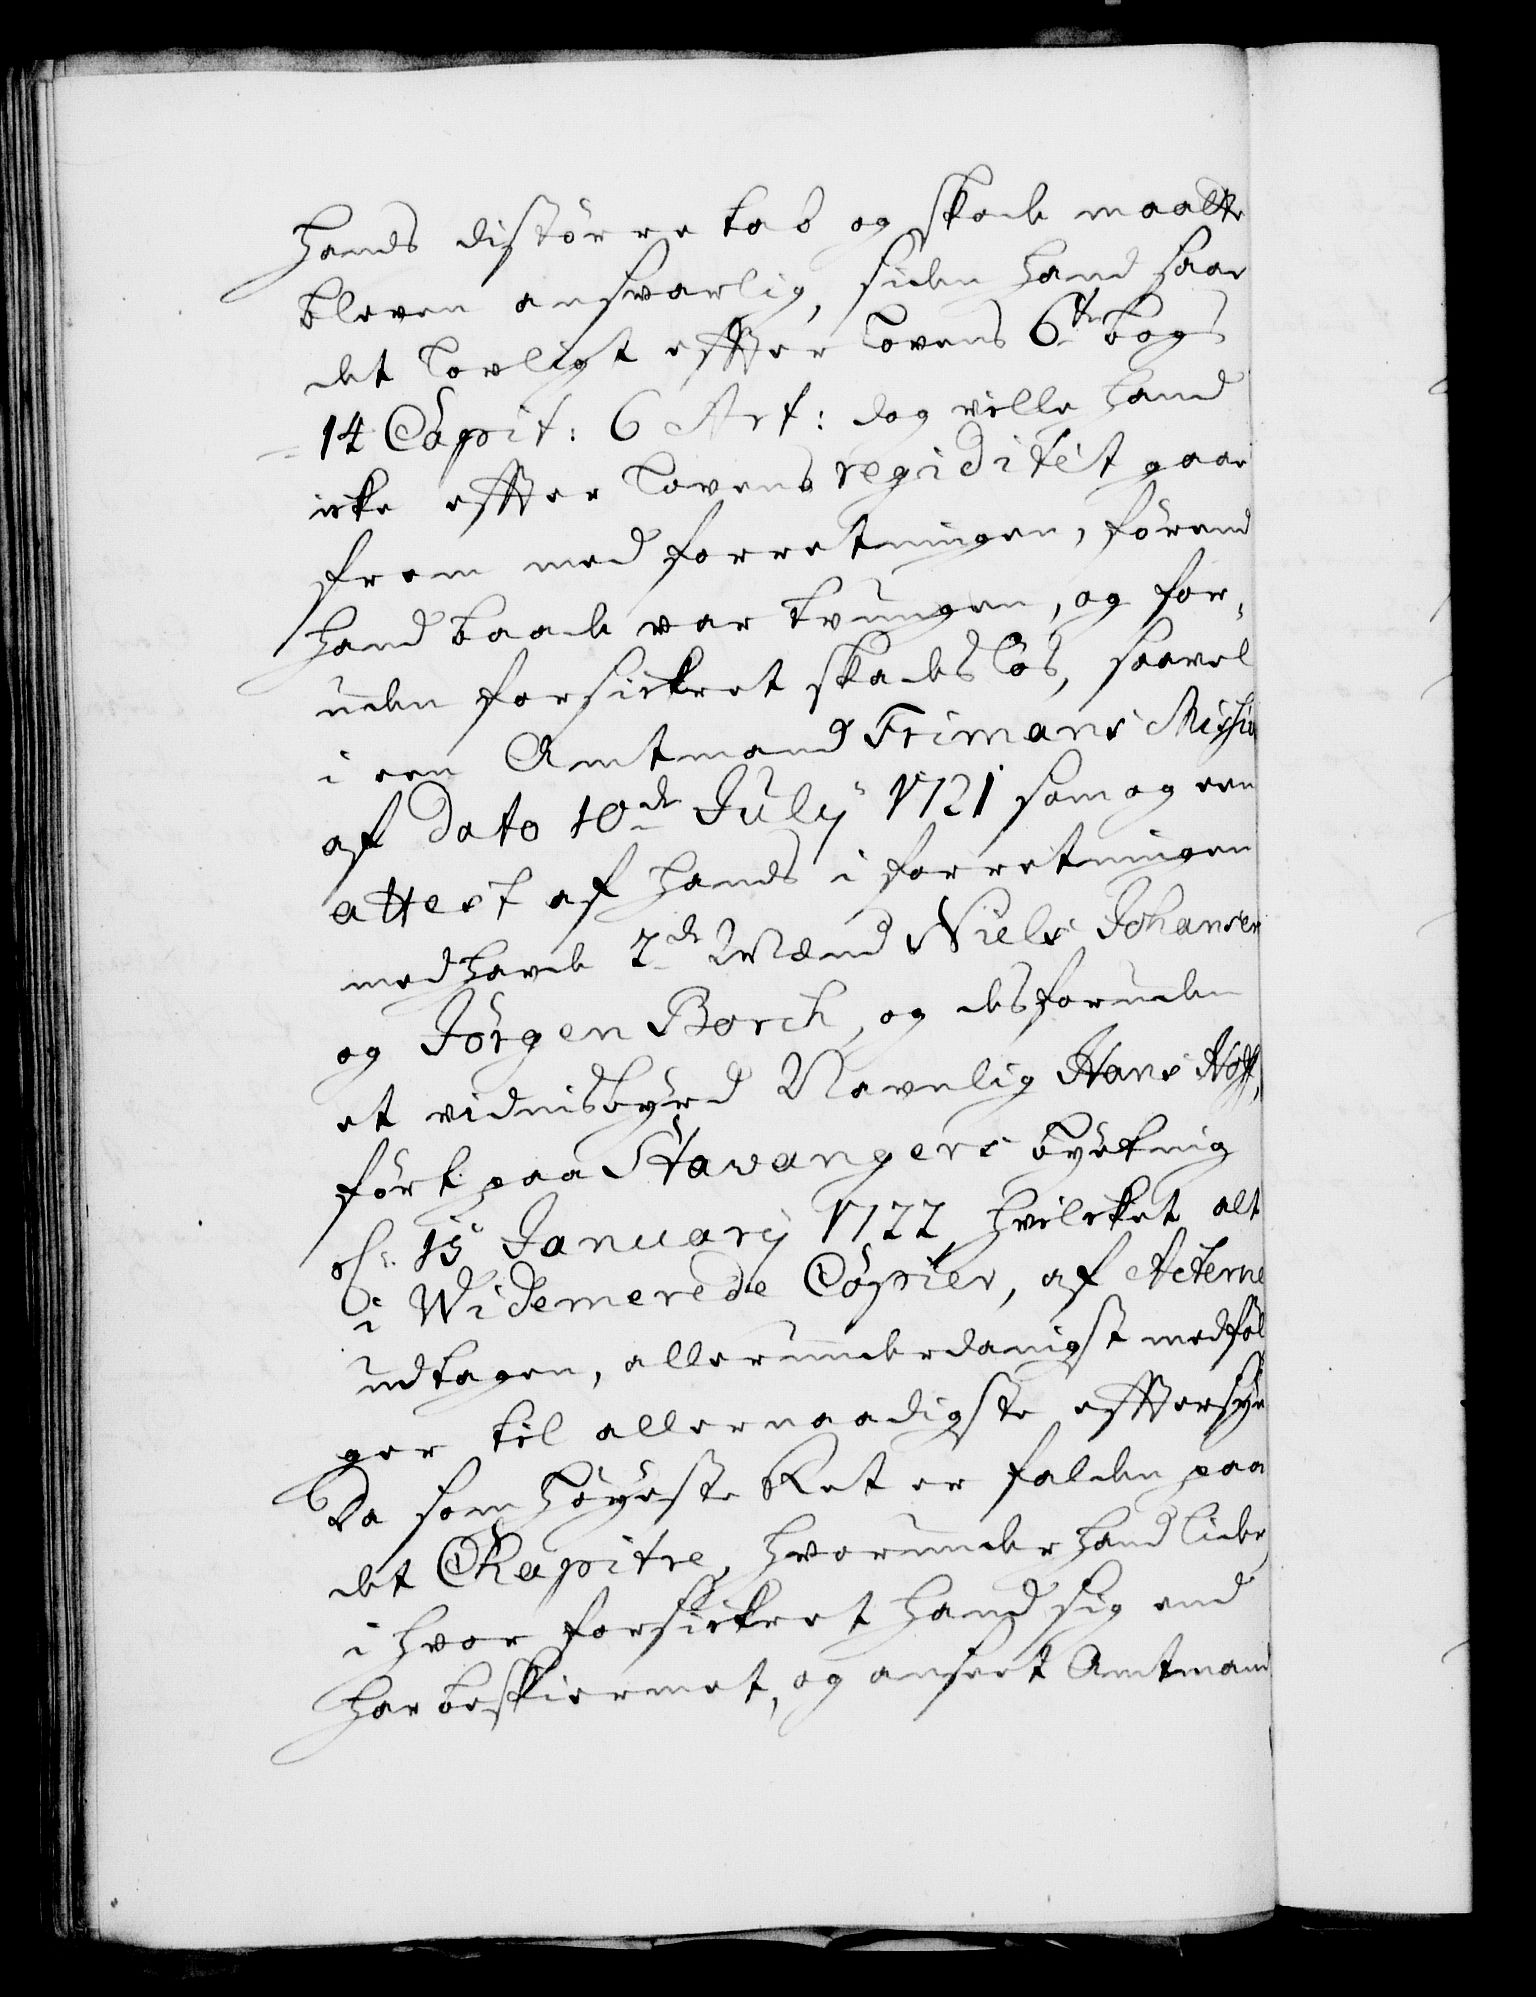 hands distörre tab og skade maatte
bleven ansvarlig, siden hand saae
det lovligt effter Lovens 6te bogs
14 Capit: 6 Art: dog ville hand
icke effter Lovens regiditet gaae
frem med forretningen, förend
hand baade var tvungen, og for,
uden forsickret skadeslös, saavel
i een Amtmand Frimans Missiv
af dato 10de July 1721 som og een
attest af hands i forretningen
medhavde 2de Mænd Niels Johansen
og Jörgen Borch, og desforuden
et vidnisbyrd Navnlig Hans Hoff,
fört paa Stavangers bytting
d: 15 January 1722, hvilcket alt
i Widemerede Copier, af Acterne
udtagen, allerunderdanigst medföl
ger til allernaadigste efftersyn
Da som höyeste Ret er falden paa
det Chapitre, hvorunder hand lider
i hvor forsickret hand sig end
har beskiermet, og anseet Amtmand